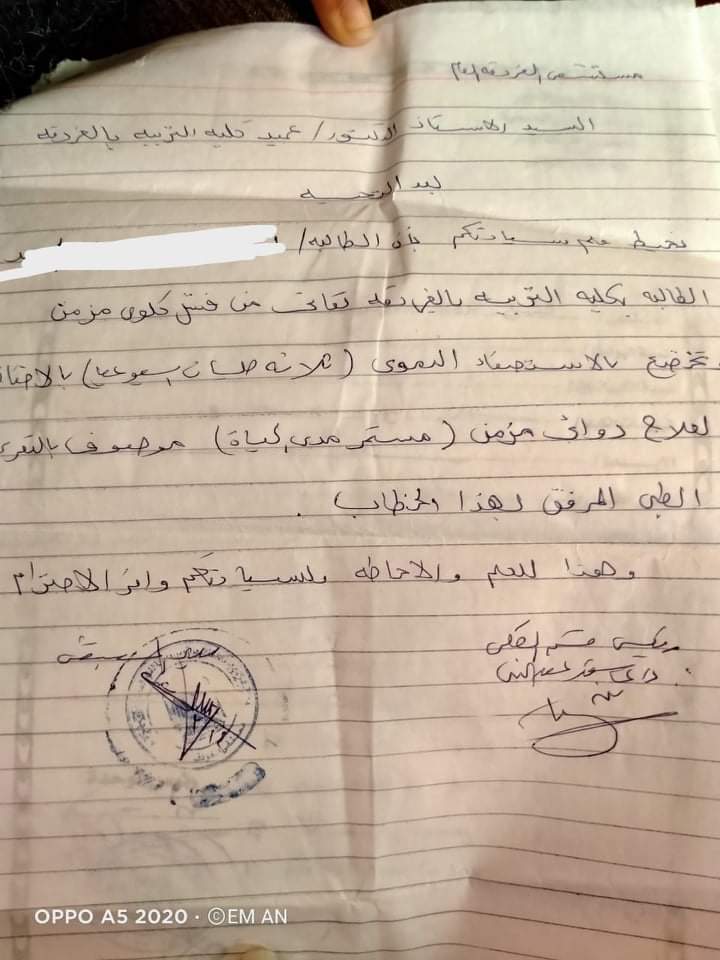 مستشفى الغردقه العام
السيد الاستاذ الدكتور / عميد كليه التربيه بالغردقه
بعد التحيه
نحيط علم سيادتكم بأن الطالبه /
الطالبه بكليه التربيه بالغردقه تعانى من فشل كلوى مزمن
وتخضع بالاستصفاء الدموى (ثلاثه جلسات اسبوعيا) بالاضافة
لعلاج دوائى مزمن (مستمر مدى الحياة) موصوف بالتقرير
الطبى المرفق بهذا الخطاب .
وهذا للعلم والاحاطه ولسيادتكم وافر الاحترام
رئيس قسم الكلى
OPPO A5 2020 · ©EM AN